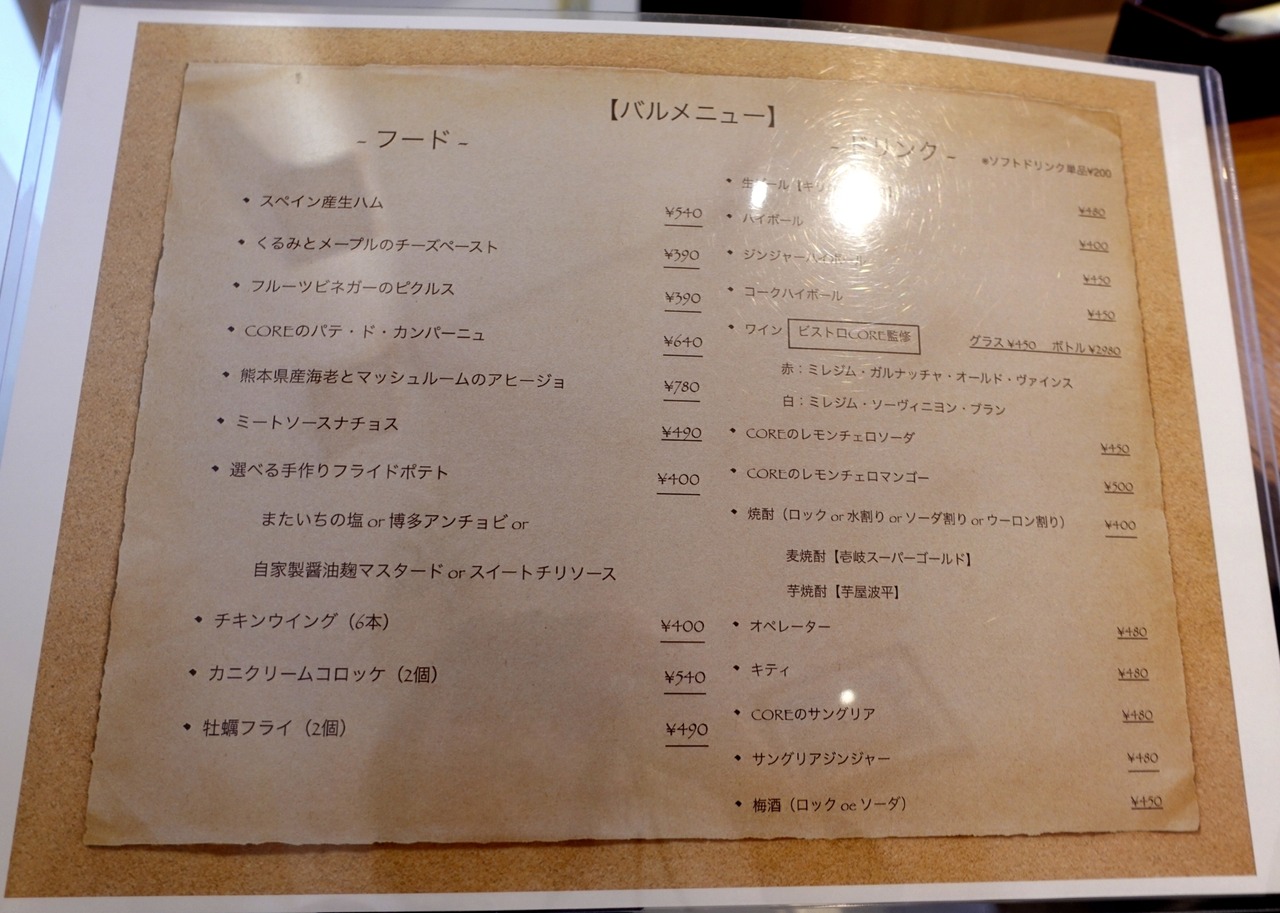 【バルメニュー】
~ フード ~
スペイン産生ハム ¥540
くるみとメープルのチーズペースト ¥390
フルーツビネガーのピクルス ¥390
COREのパテ・ド・カンパーニュ ¥640
熊本県産海老とマッシュルームのアヒージョ ¥780
ミートソースナチョス ¥490
選べる手作りフライドポテト ¥400
またいちの塩 or 博多アンチョビ or
自家製醤油麹マスタード or スイートチリソース
チキンウイング（6本） ¥400
カニクリームコロッケ（2個） ¥540
牡蠣フライ（2個） ¥490
~ ドリンク ~ ※ソフトドリンク単品¥200
生ビール【キリ ¥480
ハイボール ¥400
ジンジャーハイボール ¥450
コークハイボール ¥450
ワイン ビストロCORE監修 グラス ¥450 ボトル ¥2980
赤：ミレジム・ガルナッチャ・オールド・ヴァインス
白：ミレジム・ソーヴィニヨン・ブラン
COREのレモンチェロソーダ ¥450
COREのレモンチェロマンゴー ¥500
焼酎（ロック or 水割り or ソーダ割り or ウーロン割り） ¥400
麦焼酎【壱岐スーパーゴールド】
芋焼酎【芋屋波平】
オペレーター ¥480
キティ ¥480
COREのサングリア ¥480
サングリアジンジャー ¥480
梅酒（ロック oe ソーダ） ¥450